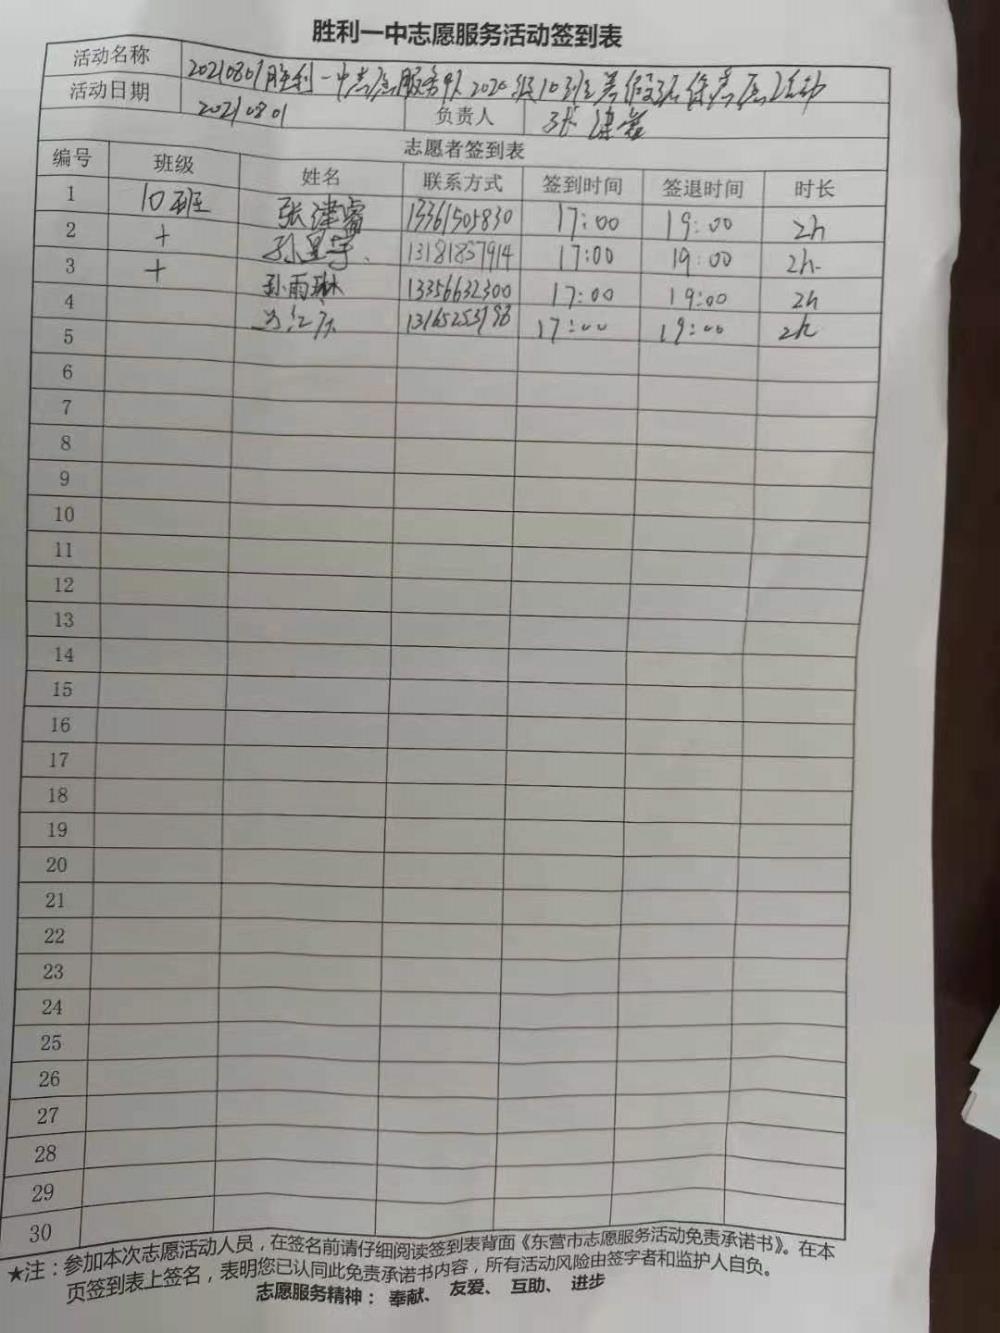 胜利一中志愿服务活动签到表
活动名称 20210801胜利一中志愿服务队2020级10班暑假环保志愿活动
活动日期 20210801 负责人 张津睿
志愿者签到表
编号 班级 姓名 联系方式 签到时间 签退时间 时长
1 10班 张津睿 15361505830 17:00 19:00 2h
2 + 孙昱宇 13181837914 17:00 19:00 2h
3 + 孙雨琳 13356632300 17:00 19:00 2h
4 13165253198 17:00 19:00 2h
5
6
7
8
9
10
11
12
13
14
15
16
17
18
19
20
21
22
23
24
25
26
27
28
29
30
★注：参加本次志愿活动人员，在签名前请仔细阅读签到表背面《东营市志愿服务活动免责承诺书》。在本
页签到表上签名，表明您已认同此免责承诺书内容，所有活动风险由签字者和监护人自负。
志愿服务精神： 奉献、 友爱、 互助、 进步